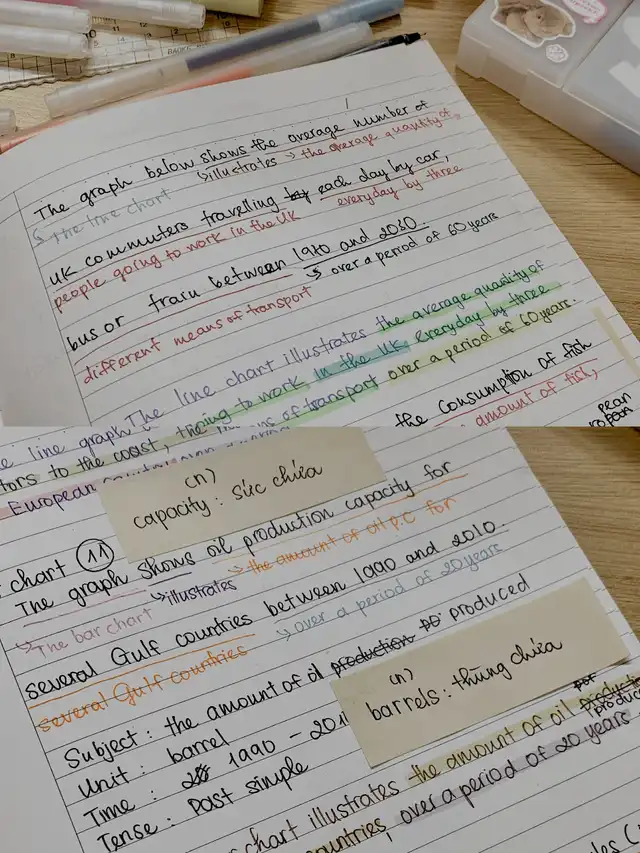 The graph below shows the average number of
↳illustrates → the average quantity of
↳ The line chart
UK commuters travelling by each day by car,
people going to work in the UK everyday by three
bus or train between 1970 and 2030.
↳ over a period of 60 years
different means of transport
The line chart illustrates the average quantity of
going to work in the UK everyday by three
means of transport over a period of 60 years.
line graph
the consumption of fish
tors to the coast,
amount of fish,
European
pean
(n)
capacity : sức chứa
chart 11
The graph shows oil production capacity for
↳illustrates → the amount of oil p.c for
↳The bar chart
several Gulf countries between 1990 and 2010.
↳over a period of 20 years
several Gulf countries
Subject : the amount of oil production produced
(n)
barrels : thùng chứa
Unit : barrel
Time : 1990 - 201
Tense : Past simple
chart illustrates the amount of oil
countries, over a period of 20 years